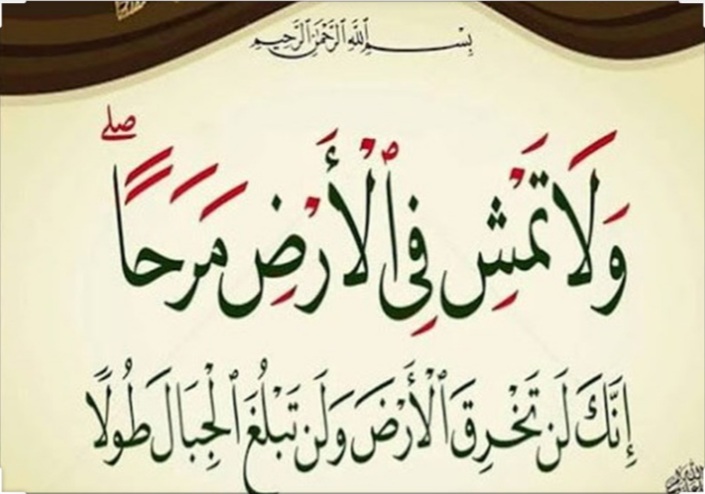 بِسْمِ ٱللَّهِ ٱلرَّحْمَٰنِ ٱلرَّحِيمِ
وَلَا تَمْشِ فِى ٱلْأَرْضِ مَرَحًا ۖ
إِنَّكَ لَن تَخْرِقَ ٱلْأَرْضَ وَلَن تَبْلُغَ ٱلْجِبَالَ طُولًا